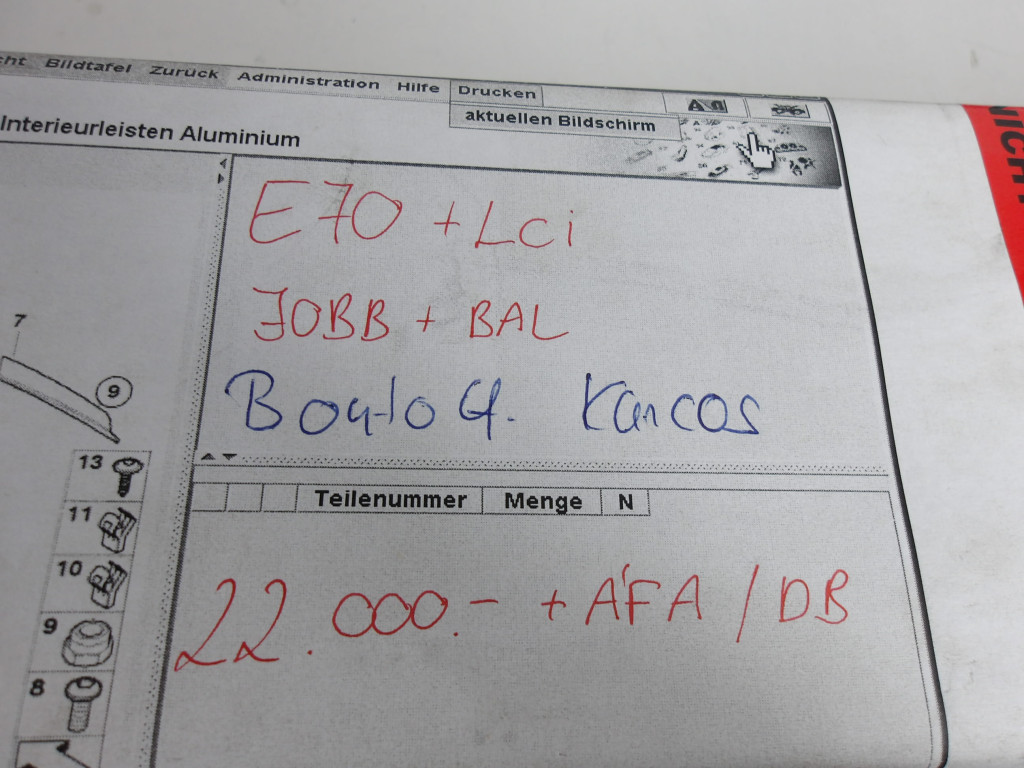 Bildtafel Zurück Administration Hilfe Drucken
aktuellen Bildschirm
Interieurleisten Aluminium
E70 + LCi
JOBB + BAL
Karcos
7
9
13
11
10
9
8
Teilenummer Menge N
22.000.- + ÁFA / DB